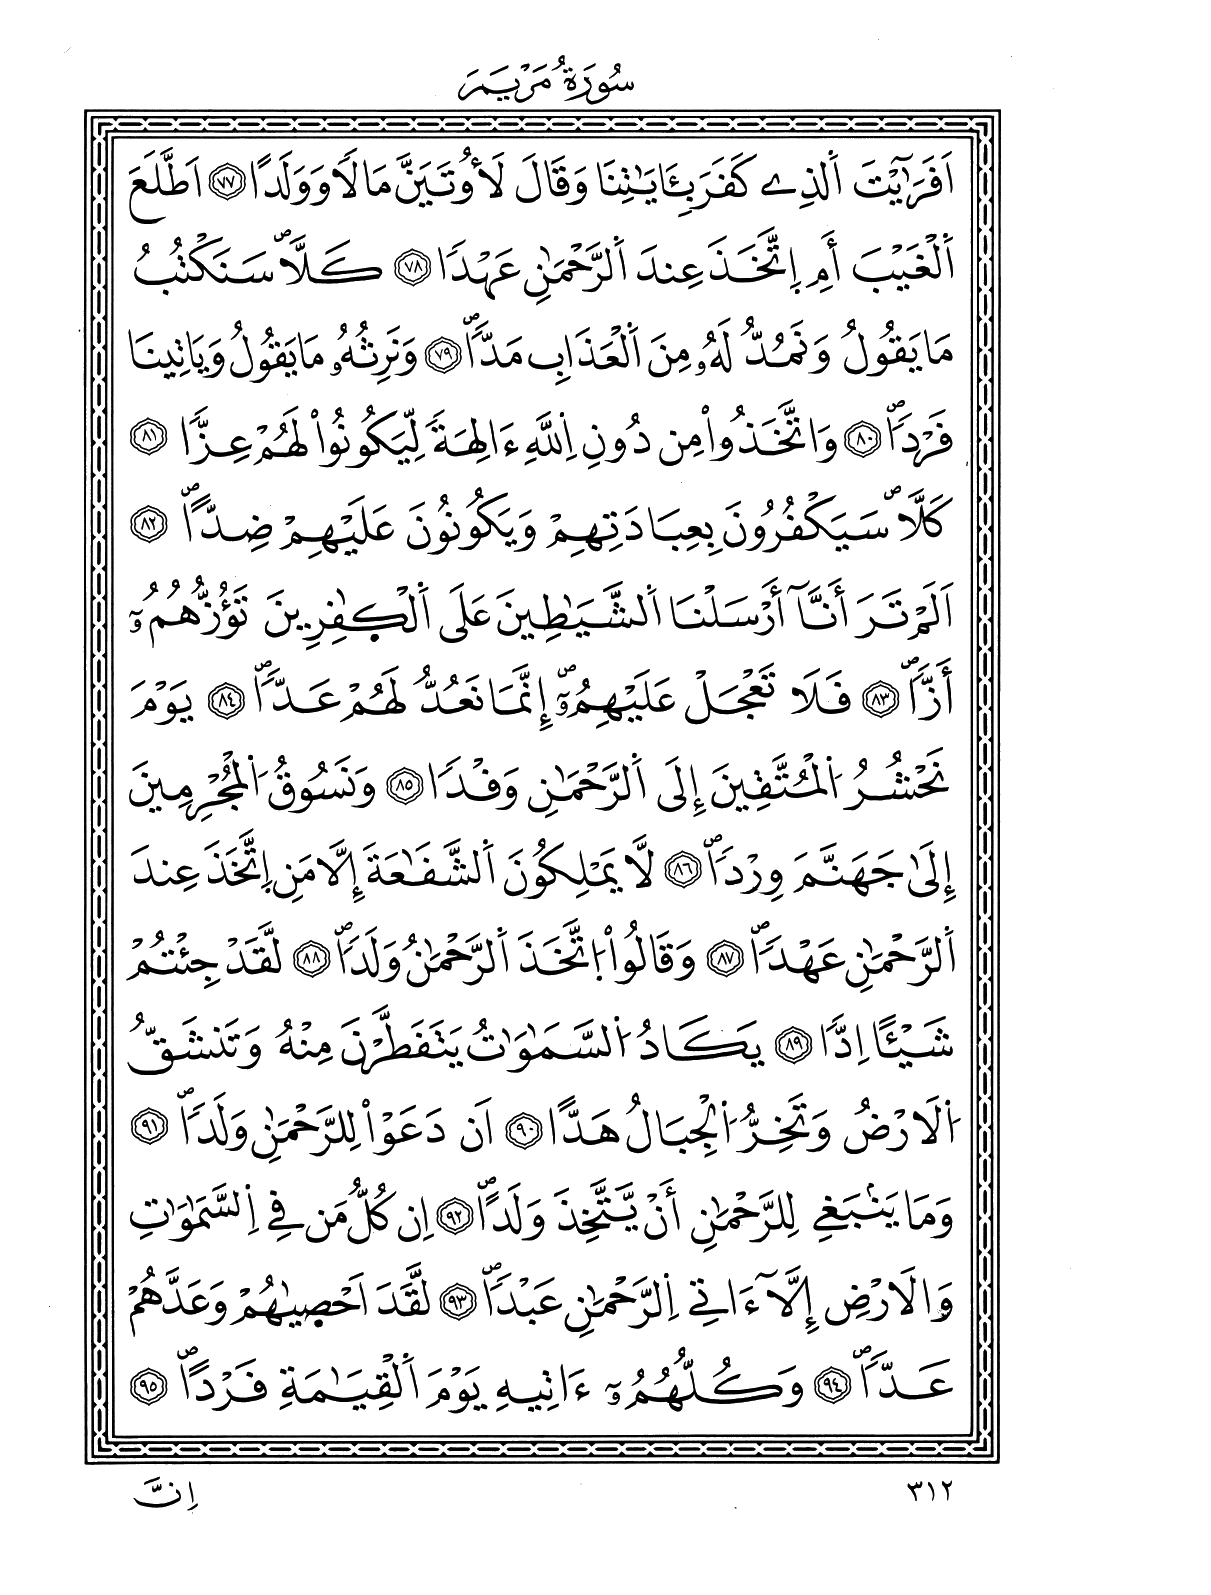 سُورَةُ مَرْيَمَ
اَفَرَٰٓيْتَ اَ۬لذِے كَفَرَ بِـَٔايَٰتِنَا وَقَالَ لَأُوتَيَنَّ مَالًا وَوَلَدًا ٧٧ اَطَّلَعَ
اَ۬لْغَيْبَ أَمِ اِ۪تَّخَذَ عِندَ اَ۬لرَّحْمَٰنِ عَهْدًا ٧٨ كَلَّاۖ سَنَكْتُبُ
مَا يَقُولُ وَنَمُدُّ لَهُۥ مِنَ اَ۬لْعَذَابِ مَدًّاۖ ٧٩ وَنَرِثُهُۥ مَا يَقُولُ وَيَاتِينَا
فَرْداًۖ ٨٠ وَاتَّخَذُواْ مِن دُونِ اِ۬للَّهِ ءَالِهَةً لِّيَكُونُواْ لَهُمْ عِزًّا ٨١
كَلَّاۖ سَيَكْفُرُونَ بِعِبَادَتِهِمْ وَيَكُونُونَ عَلَيْهِمْ ضِدًّاۖ ٨٢
اَلَمْ تَرَ أَنَّآ أَرْسَلْنَا اَ۬لشَّيَٰطِينَ عَلَى اَ۬لْكٰ۪فِرِينَ تَؤُزُّهُمُۥٓ
أَزًّاۖ ٨٣ فَلَا تَعْجَلْ عَلَيْهِمُۥٓۖ إِنَّمَا نَعُدُّ لَهُمْ عَدًّاۖ ٨٤ يَوْمَ
نَحْشُرُ اُ۬لْمُتَّقِينَ إِلَى اَ۬لرَّحْمَٰنِ وَفْدًا ٨٥ وَنَسُوقُ اُ۬لْمُجْرِمِينَ
إِلَىٰ جَهَنَّمَ وِرْداًۖ ٨٦ لَّا يَمْلِكُونَ اَ۬لشَّفَٰعَةَ إِلَّا مَنِ اِ۪تَّخَذَ عِندَ
اَ۬لرَّحْمَٰنِ عَهْداًۖ ٨٧ وَقَالُواْ اُ۪تَّخَذَ اَ۬لرَّحْمَٰنُ وَلَداًۖ ٨٨ لَّقَدْ جِئْتُمْ
شَيْـًٔا اِدًّا ٨٩ يَكَادُ اُ۬لسَّمَٰوَٰتُ يَتَفَطَّرْنَ مِنْهُ وَتَنشَقُّ
اُ۬لَارْضُ وَتَخِرُّ اُ۬لْجِبَالُ هَدًّا ٩٠ اَن دَعَوْاْ لِلرَّحْمَٰنِ وَلَداًۖ ٩١
وَمَا يَنۢبَغِے لِلرَّحْمَٰنِ أَنْ يَّتَّخِذَ وَلَداًۖ ٩٢ اِن كُلُّ مَن فِے اِ۬لسَّمَٰوَٰتِ
وَالَارْضِ إِلَّآ ءَاتِے اِ۬لرَّحْمَٰنِ عَبْداًۖ ٩٣ لَّقَدَ اَحْصٰ۪يهُمْ وَعَدَّهُمْ
عَدًّاۖ ٩٤ وَكُلُّهُمُۥٓ ءَاتِيهِ يَوْمَ اَ۬لْقِيَٰمَةِ فَرْداًۖ ٩٥
٣١٢
إِنَّ